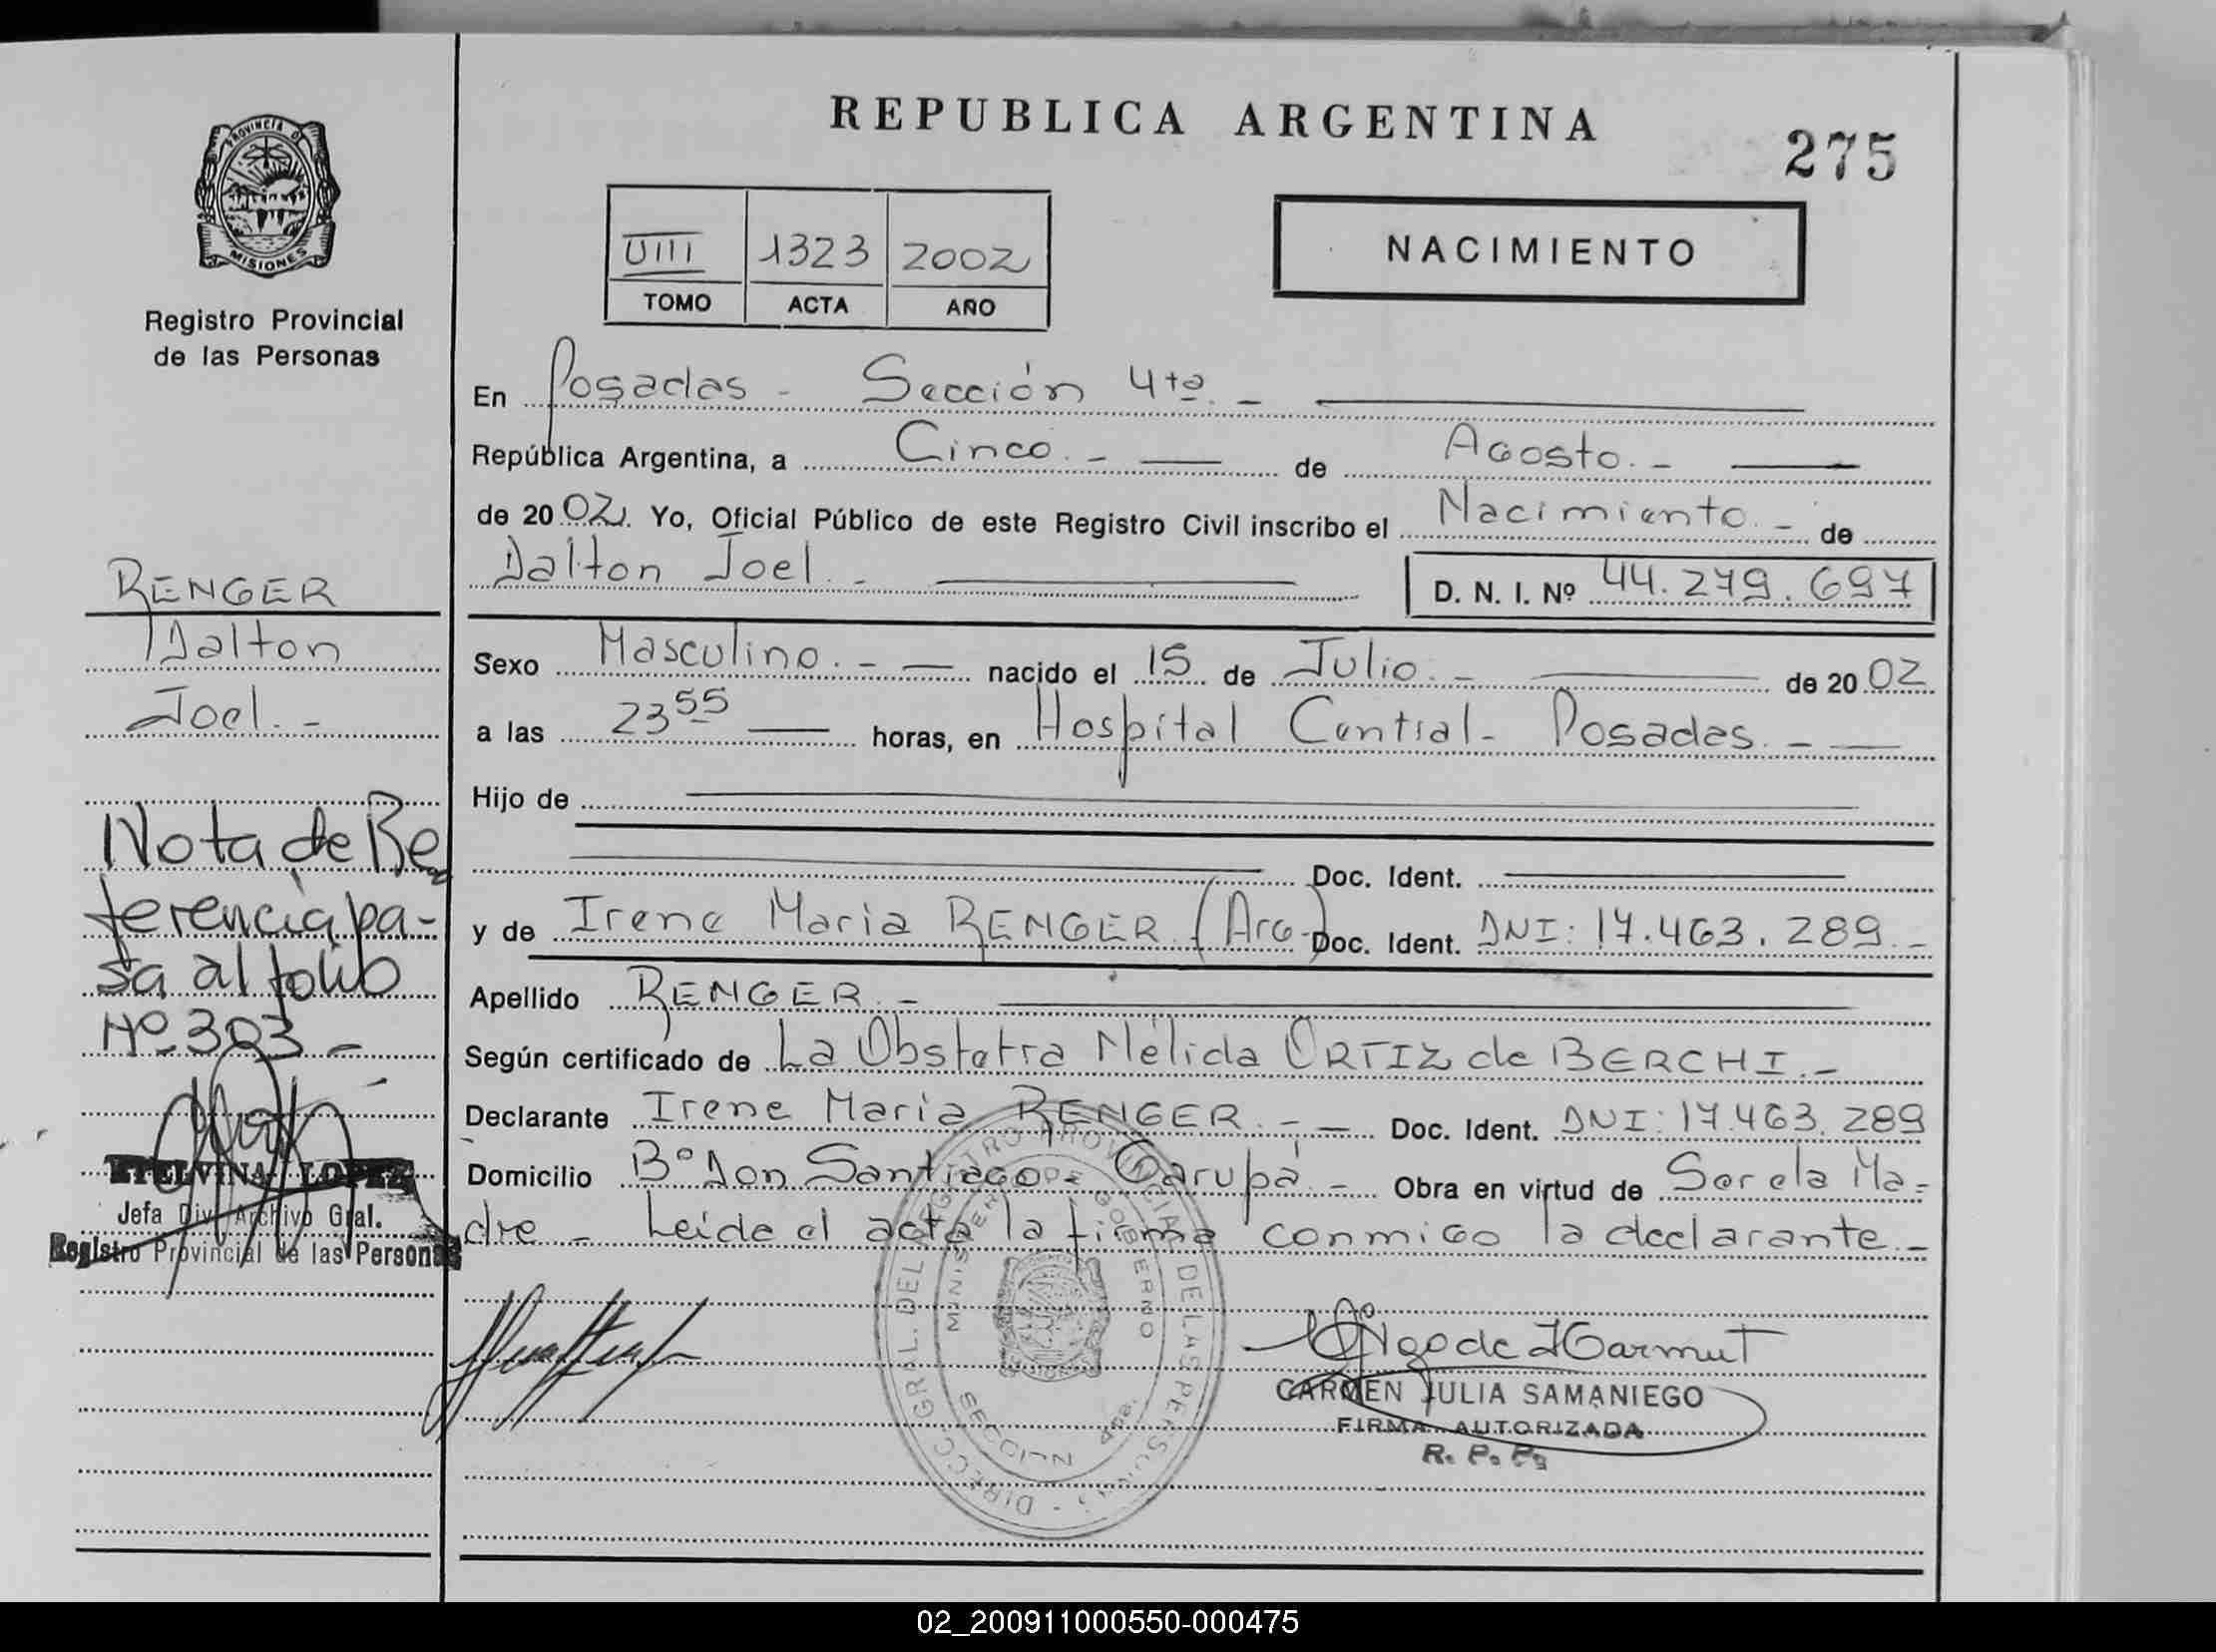 REPUBLICA ARGENTINA
275
PROVINCIA DE
MISIONES
Registro Provincial
de las Personas
VIII 1323 2002
TOMO ACTA AÑO
NACIMIENTO
En Posadas - Sección 4ta. -
República Argentina, a Cinco. - de Agosto. -
de 20 02. Yo, Oficial Público de este Registro Civil inscribo el Nacimiento. - de
Dalton Joel. - D. N. I. Nº 44.279.697
RENGER
Dalton
Joel. -
Sexo Masculino. - nacido el 15 de Julio. - de 20 02
a las 23 55 horas, en Hospital Central - Posadas. -
Hijo de
Doc. Ident.
y de Irene Maria RENGER (Arg.) Doc. Ident. DNI: 17.463.289. -
Apellido RENGER. -
Según certificado de La Obstetra Nélida ORTIZ de BERCHI. -
Declarante Irene Maria RENGER. - Doc. Ident. DNI: 17.463.289
Domicilio Bº Don Santiago Garupá. - Obra en virtud de Ser ela Ma=
dre - Leída el acta la firma conmigo la declarante. -
Nota de Re
ferencia pa-
sa al folio
Nº 303 -
ETELVINA LOPEZ
Jefa Div. Archivo Gral.
Registro Provincial de las Personas
DIRECC. GRAL. DEL REGISTRO PROVINCIAL DE LAS PERSONAS
MINISTERIO DE GOBIERNO
SECCION 4ta.
MISIONES
CARMEN JULIA SAMANIEGO
FIRMA AUTORIZADA
R. P. P.
02_200911000550-000475